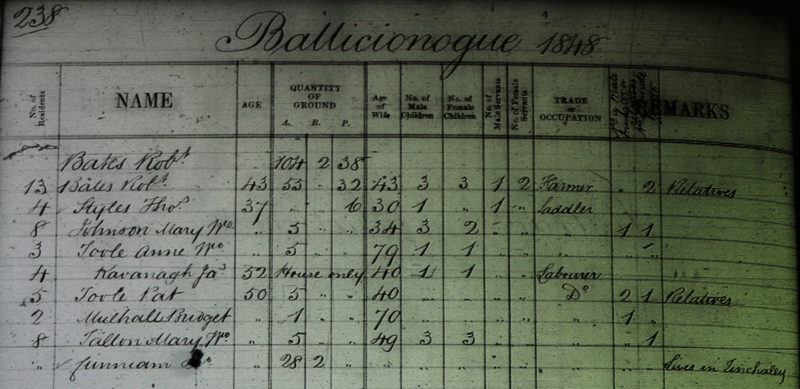 238
Ballicionogue 1848
No. of Residents NAME AGE QUANTITY OF GROUND A. R. P. Age of Wife No. of Male Children No. of Female Children No. of Male Servants No. of Female Servants TRADE or OCCUPATION REMARKS
Bates Robt. 104 2 38
13 Bates Robt. 43 55 " 32 43 3 3 1 2 Farmer " 2 Relatives
4 Styles Thos. 37 " " 16 30 1 " 1 " Saddler
8 Johnson Mary Wo " 5 " " 34 3 2 " " " 1 1
3 Toole Anne Wo " 5 " " 79 1 1 " " " " "
4 Kavanagh Jas 52 House only 40 1 1 " " Labourer
5 Toole Pat 50 5 " " 40 " " " " Do 2 1 Relatives
2 Mulhall Bridget " 1 " " 70 " " " " " 1 "
8 Tallon Mary Wo " 5 " " 49 3 3 " " " " 1
" 28 2 " Lives in Tinehaley